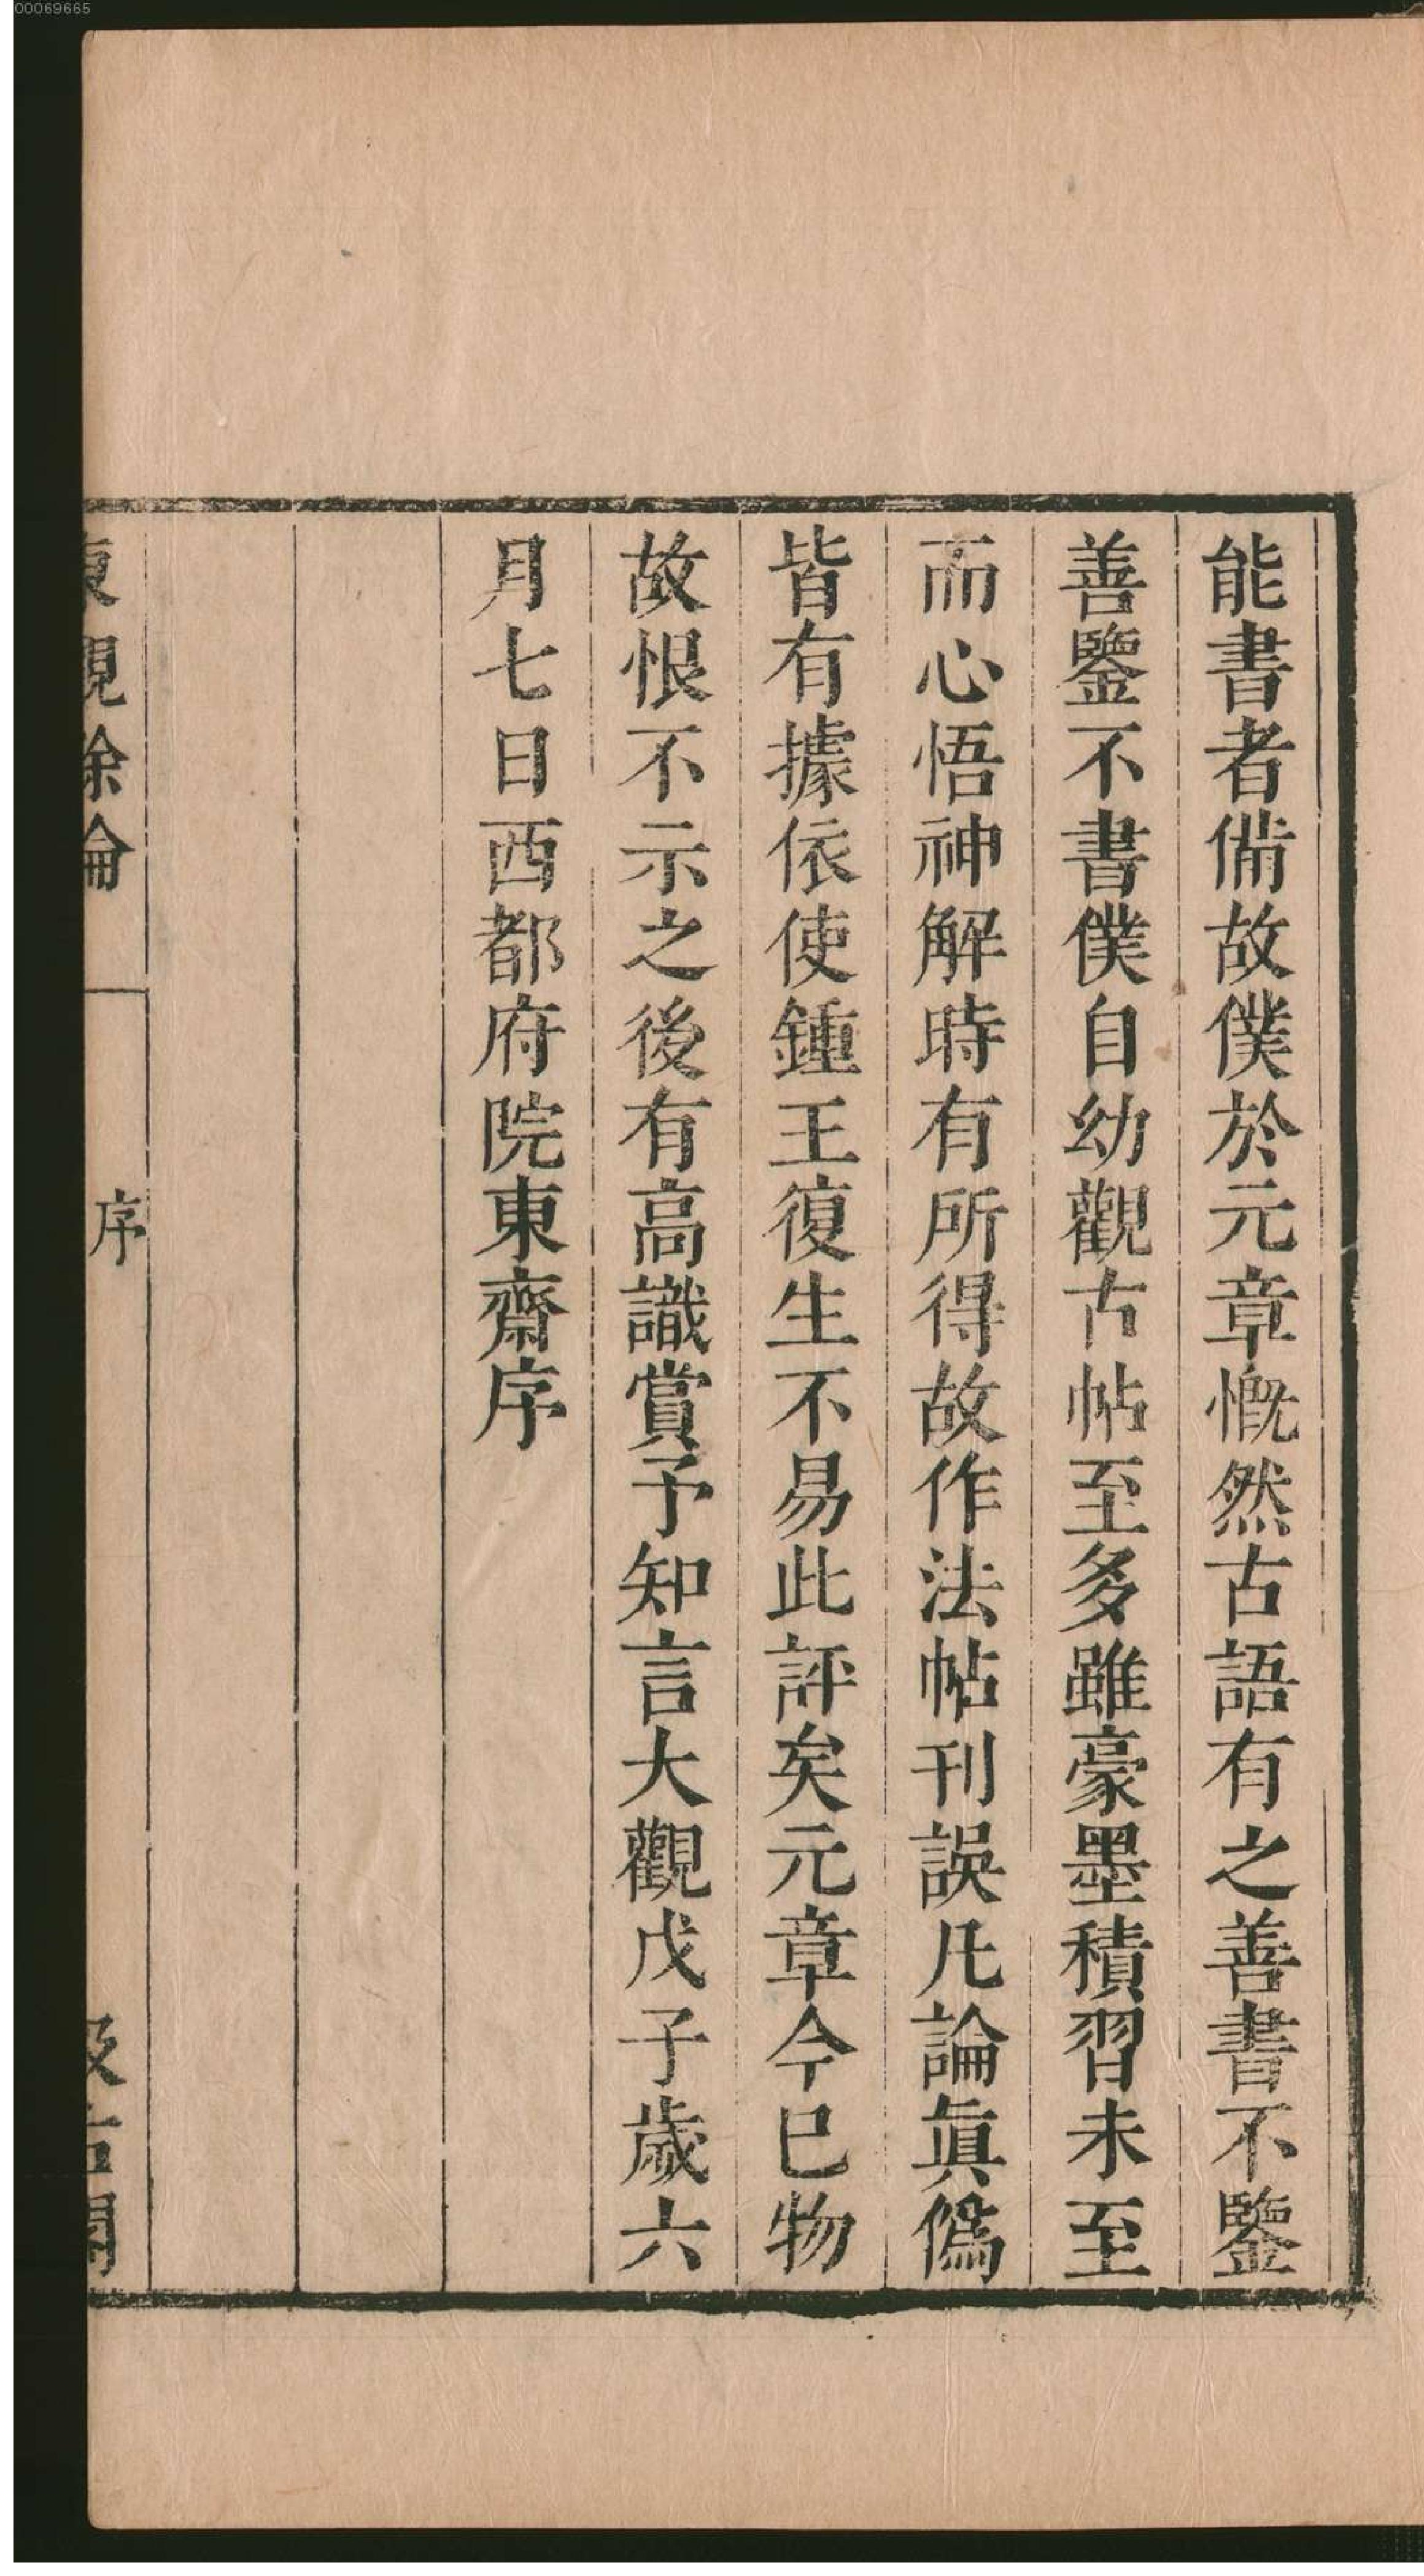 00069665
能書者備故僕於元章慨然古語有之善書不鑒
善鑒不書僕自幼觀古帖至多雖豪墨積習未至
而心悟神解時有所得故作法帖刊誤凡論眞僞
皆有據依使鍾王復生不易此評矣元章今已物
故恨不示之後有高識賞予知言大觀戊子歲六
月七日西都府院東齋序
東觀餘論
序
汲古閣